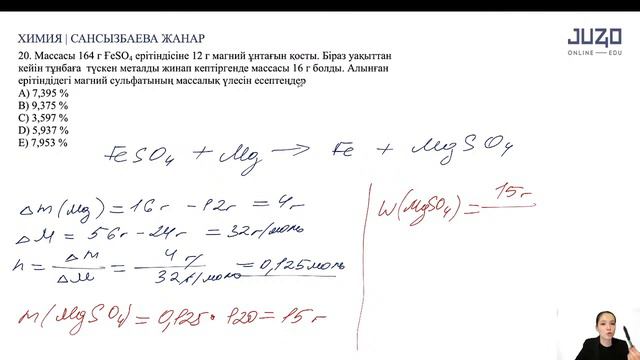 ХИМИЯ | САНСЫЗБАЕВА ЖАНАР
JUZ40
ONLINE EDU
20. Массасы 164 г FeSO₄ ерітіндісіне 12 г магний ұнтағын қосты. Біраз уақыттан
кейін тұнбаға түскен металды жинап кептіргенде массасы 16 г болды. Алынған
ерітіндідегі магний сульфатының массалық үлесін есептеңдер
A) 7,395 %
B) 9,375 %
C) 3,597 %
D) 5,937 %
E) 7,953 %
FeSO₄ + Mg → Fe + MgSO₄
Δm(Mg) = 16г - 12г = 4г
ΔM = 56г - 24г = 32г/моль
n = Δm/ΔM = 4г/32г/моль = 0,125моль
m(MgSO₄) = 0,125 • 120 = 15 г
W(MgSO₄) = 15г